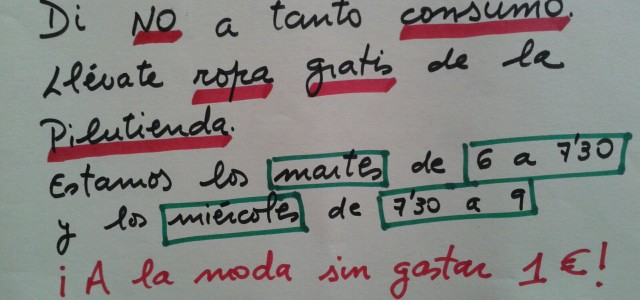 Di NO a tanto consumo.
Llévate ropa gratis de la
Pilutienda.
Estamos los martes de 6 a 7'30
y los miércoles de 7'30 a 9
¡A la moda sin gastar 1 €!